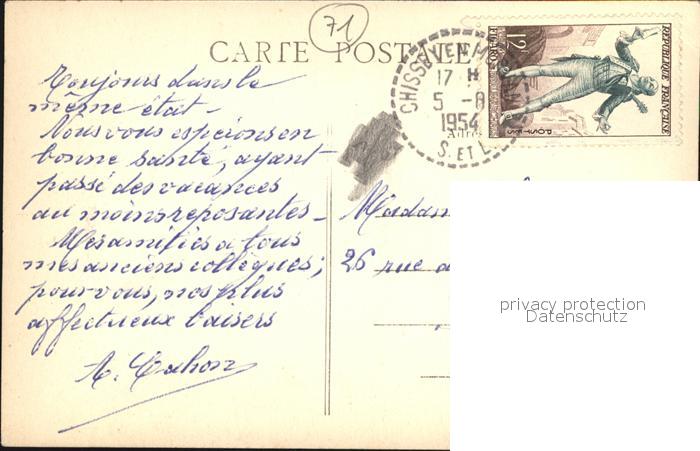 71
CARTE POSTALE
Toujours dans le
même état -
Nous vous espérons en
bonne santé, ayant
passé des vacances
au moins reposantes -
Mes amitiés à tous
mes anciens collègues ;
pour vous, nos plus
affectueux baisers
A. Cahon
CHISSEY EN M
17 H
5 - 8
1954
S. ET L.
12F
REPUBLIQUE FRANÇAISE
POSTES
Madam
26 rue d
privacy protection
Datenschutz